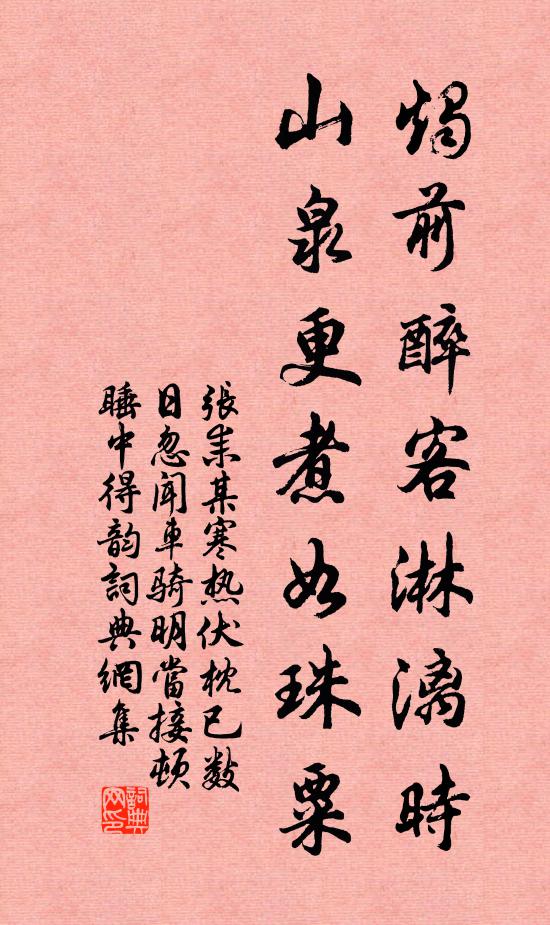 燭前醉客淋漓時
山泉更煮如珠粟
張耒某寒热伏枕已数
日忽闻車骑明當接頓
睡中得韵詞典網集
詞典网印